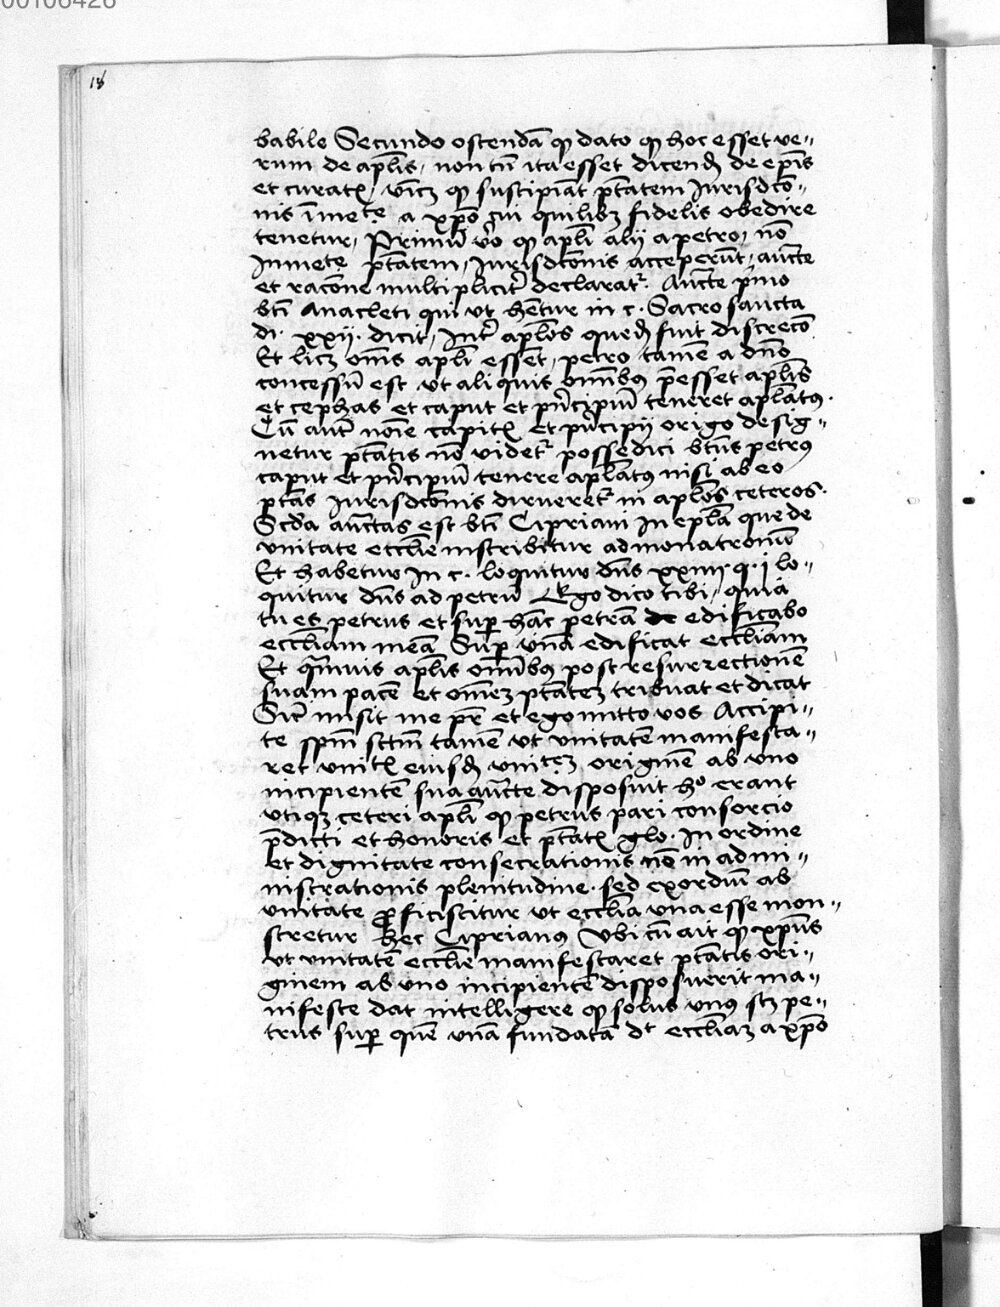 00106426
18
babile Secundo ostendā ꝙ dato ꝙ hoc esset ve〃
rum de apl̄is, non tn̄ ita esset dicend̄ de ep̄is
et curatꝭ, vīcꝫ ꝙ suscipiāt ptātem Jurisdcō〃
nis īmete a xp̄o cui quilibꝫ fidelis obedire
tenetur, Primū v̄o ꝙ apl̄i alij a petro, nō
Inmete ptātem, Jurisdcōnis acceperūt, auc̄te
et racōne multiplicit̄ declarat᷑. Auc̄te p̄mo
bt̄i Anacleti qui vt hētur in c. Sacrosancta
di. xxij. dicit, Int̄ apl̄os qued̄ fuit discrecō
Et licꝫ om̄s apl̄i essēt, petro tamē a dn̄o
concessū est vt aliquis om̄ibꝰ p̄esset apl̄is
et cephas et caput et pn̄cipiū teneret apl̄atꝰ.
Cū aut̄ noīe capitꝭ et pn̄cipij origo desig〃
netur ptātis nō videt᷑ posse dici bt̄us petrꝰ
caput et pn̄cipiū tenere apl̄atꝰ nisi ab eo
ptās Jurisdcōnis dirueret᷑ in apl̄os ceteros.
Scd̄a auc̄tas est bt̄i Cipriani In epl̄a que de
vnitate eccl̄ie inscribitur ad monacronū
Et habetur In c. loquitur dn̄s xxiiii. q. i lo〃
quitur dn̄s ad petrū Ergo dico tibi, quia
tu es petrus et suꝑ hāc petrā de edificabo
eccl̄iam meā Suꝑ vnā edificat eccl̄iam
Et qm̄uis apl̄is om̄ibꝰ post resurrectionē
suam pacē et om̄eꝫ ptāteꝫ tribuat et dicat
Sic̄ misit me pr̄ et ego mitto vos Accipi〃
te sp̄m sctm̄ tamē vt vnitatē manifesta〃
ret vnitꝭ eiusd̄ vniteꝫ originē ab vno
incipientē sua auc̄te disposuit hº erant
vtiqꝫ ceteri apl̄i ꝙ petrus pari consorcio
p̄diti et honoris et ptātꝭ glo. In ordine
et dignitate consecrationis nō in admi〃
nistrationis plenitudine. sed exordiū ab
vnitate ꝓficiscitur vt eccl̄ia vna esse mon〃
stretur Hec Ciprianꝰ Vbi tn̄ ait ꝙ xp̄us
vt vnitatē eccl̄ie manifestaret ptātis ori〃
ginem ab vno incipientē disposuerit ma〃
nifeste dat intelligere ꝙ solus vnꝰ scꝫ pe〃
trus suꝑ quē vnā fundatā dt̄ eccl̄iaꝫ a xp̄o